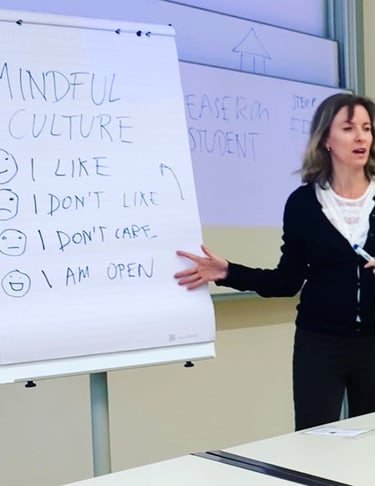 MINDFUL
CULTURE
I LIKE
I DON'T LIKE
I DON'T CARE
I AM OPEN
STUDENT